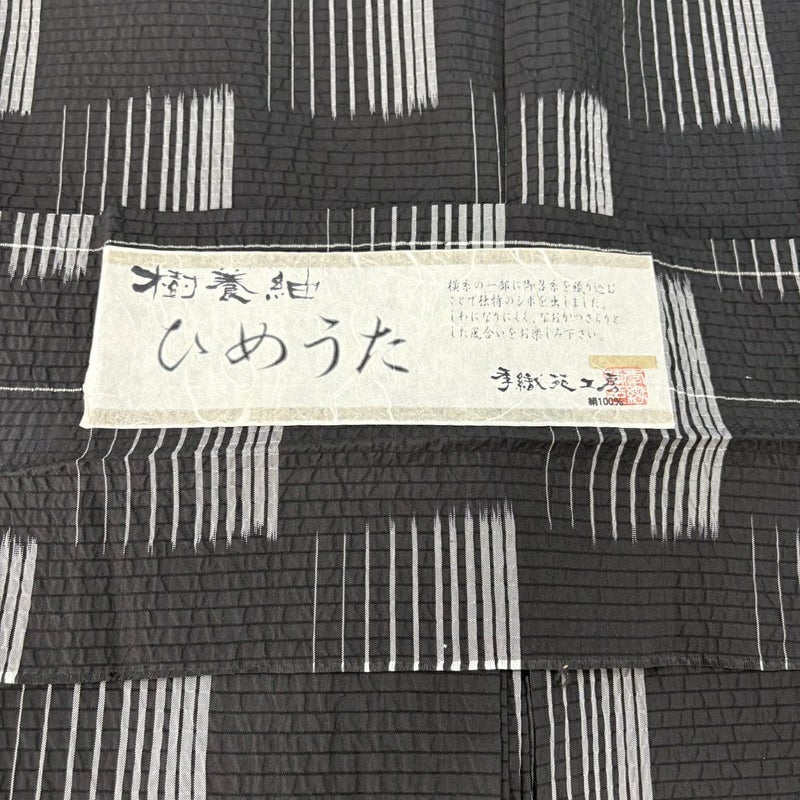 樹養紬
ひめうた
横糸の一部に御召糸を織り込む
ことで独特のシボを出しました。
しわになりにくく、なおかつさらりと
した風合いをお楽しみ下さい。
季織苑工房
絹100%